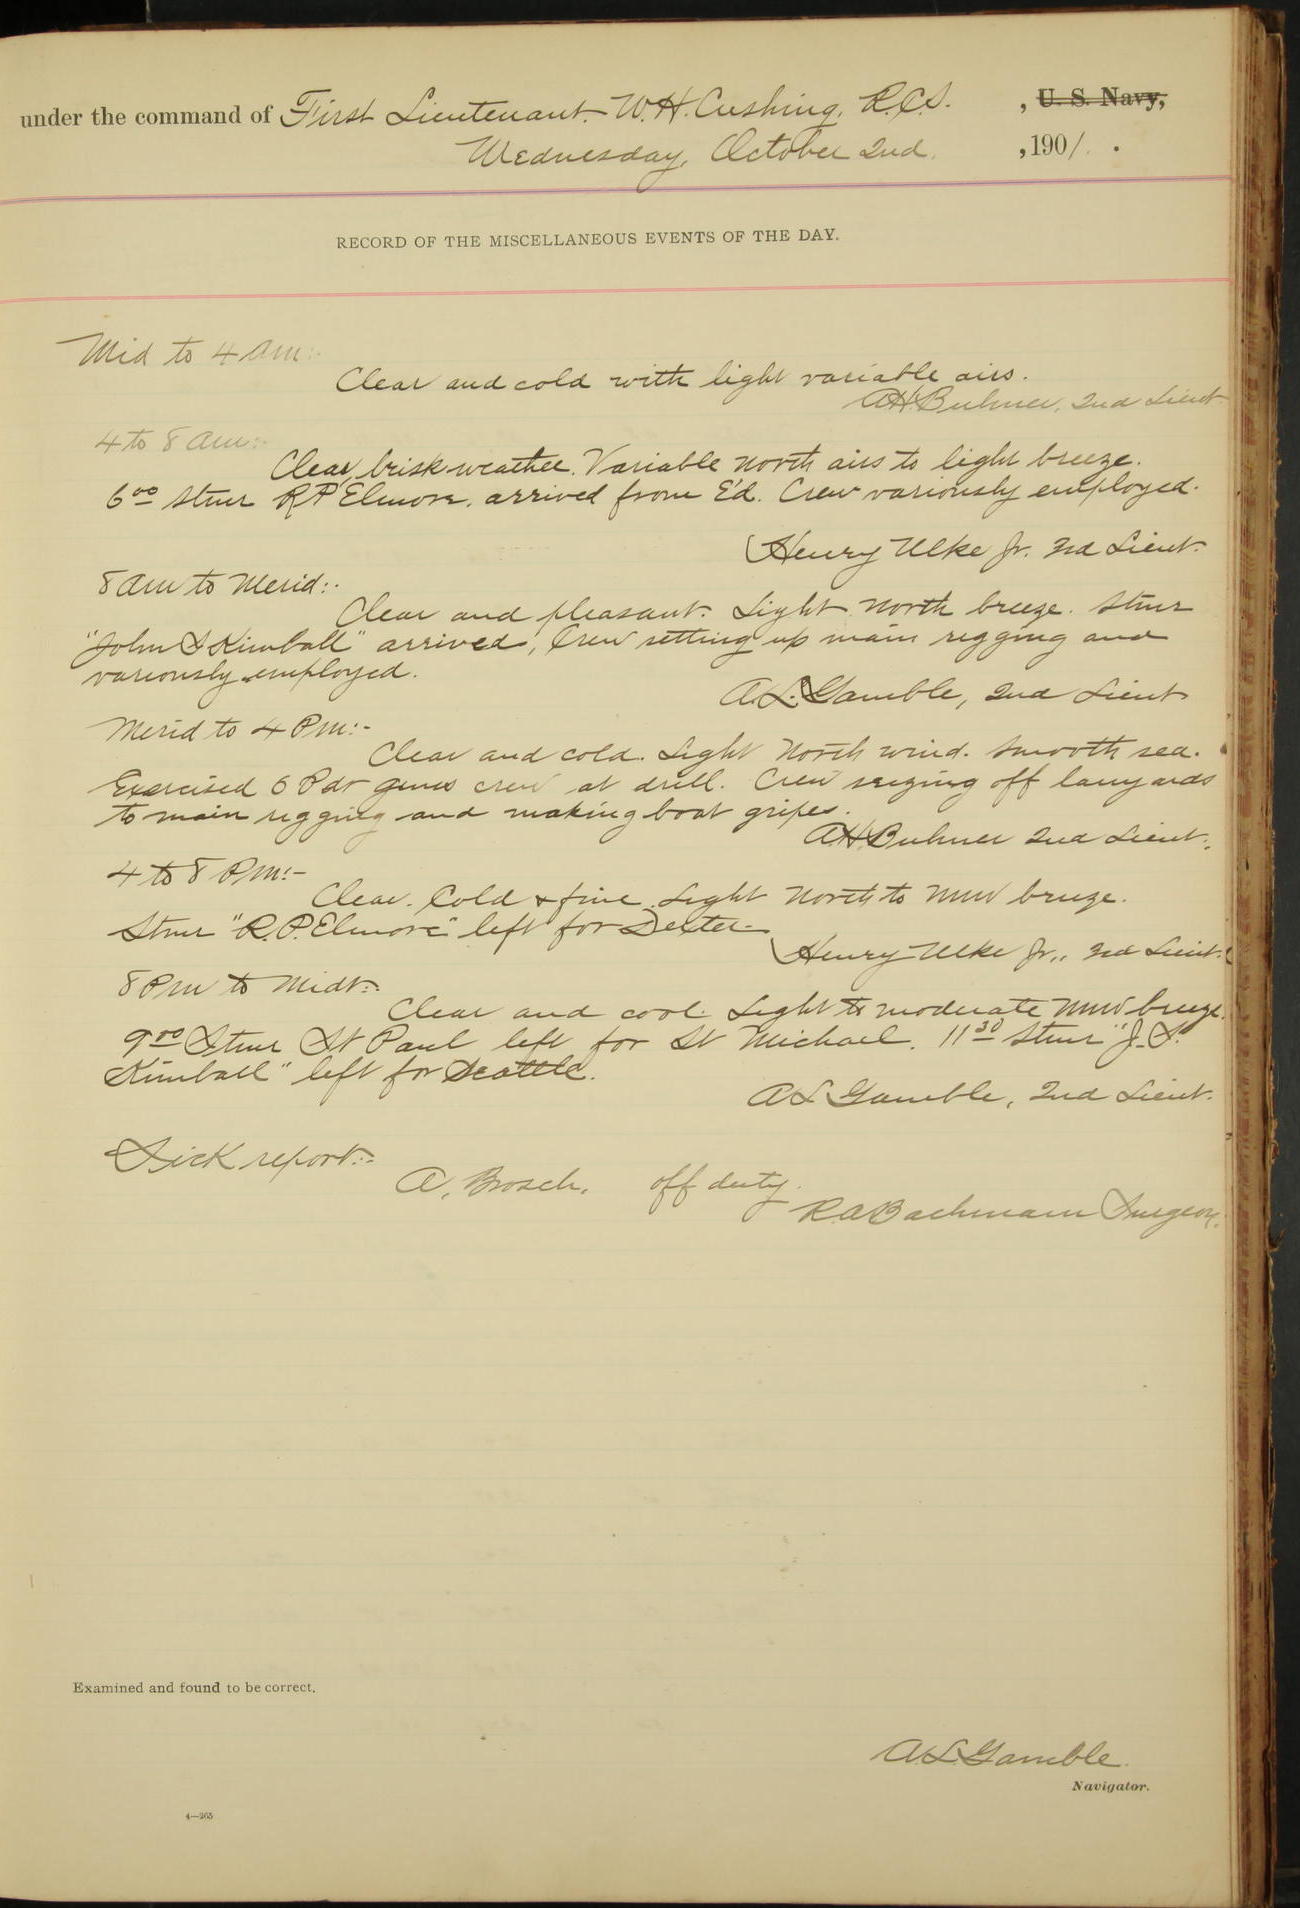 under the command of First Lieutenant. W.H. Cushing, R.C.S. , U. S. Navy,
Wednesday, October 2nd. , 1901.
RECORD OF THE MISCELLANEOUS EVENTS OF THE DAY.
Mid to 4 am:-
Clear and cold with light variable airs.
A.H. Buhner, 2nd Lieut.
4 to 8 am:-
Clear, brisk weather. Variable north airs to light breeze.
6⁰⁰ Stmr R P Elmore, arrived from E'd. Crew variously employed.
Henry Ulke Jr. 3rd Lieut.
8 am to Merid:-
Clear and pleasant. Light north breeze. Stmr
"John S Kimball" arrived, Crew setting up main rigging and
variously employed.
A.L. Gamble, 2nd Lieut
Merid to 4 Pm:-
Clear and cold. Light North wind. Smooth sea.
Exercised 6 Pdr guns crew at drill. Crew seizing off lanyards
to main rigging and making boat gripes.
A.H. Buhner 2nd Lieut.
4 to 8 Pm:-
Clear. Cold & fine. Light North to NNW breeze.
Stmr "R.P. Elmore" left for Dexter.
Henry Ulke Jr., 3rd Lieut.
8 Pm to Midt:-
Clear and cool. Light to moderate NNW breeze.
9⁰⁰ Stmr St Paul left for St Michael. 11³⁰ Stmr "J.S.
Kimball" left for Seattle.
A L Gamble, 2nd Lieut.
Sick report:-
A. Brosch, off duty.
R A Bachmann Surgeon.
Examined and found to be correct.
A.L. Gamble.
Navigator.
4—265